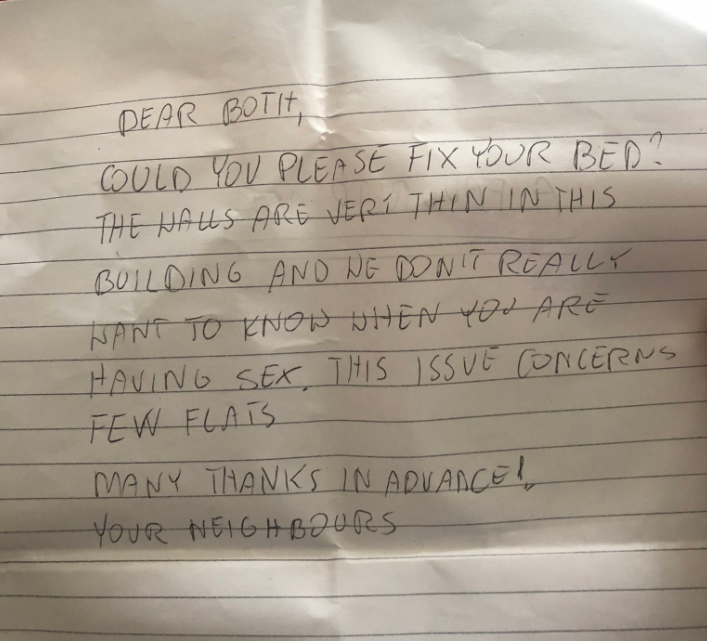 DEAR BOTH,
COULD YOU PLEASE FIX YOUR BED?
THE WALLS ARE VERY THIN IN THIS
BUILDING AND WE DON'T REALLY
WANT TO KNOW WHEN YOU ARE
HAVING SEX. THIS ISSUE CONCERNS
FEW FLATS
MANY THANKS IN ADVANCE!
YOUR NEIGHBOURS